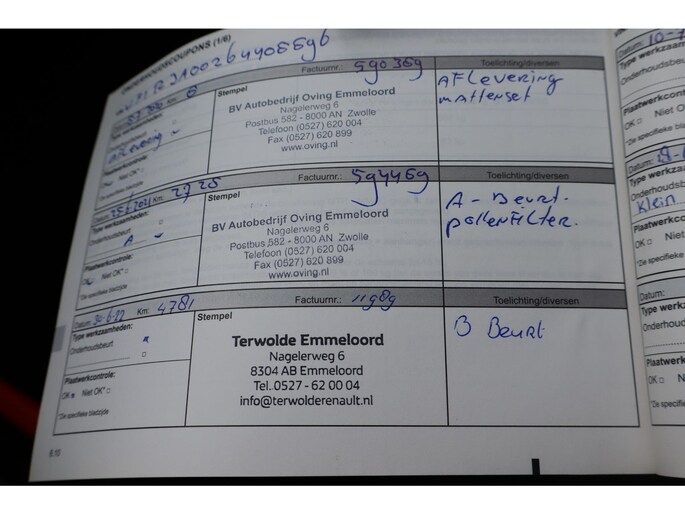 ONDERHOUDSCOUPONS (1/6)
Km: 0
Factuurnr.: 590369
Toelichting/diversen
Stempel
BV Autobedrijf Oving Emmeloord
Nagelerweg 6
Postbus 582 - 8000 AN Zwolle
Telefoon (0527) 620 004
Fax (0527) 620 899
www.oving.nl
AFLEVERING
mattenset
Aflevering
Plaatwerkcontrole:
Niet OK*
*Zie specifieke bladzijde
Datum: Km: 2725
Factuurnr.: 594469
Toelichting/diversen
Type werkzaamheden:
Onderhoudsbeurt
A
Stempel
BV Autobedrijf Oving Emmeloord
Nagelerweg 6
Postbus 582 - 8000 AN Zwolle
Telefoon (0527) 620 004
Fax (0527) 620 899
www.oving.nl
A - Beurt.
pollenFilter.
Plaatwerkcontrole:
Niet OK*
*Zie specifieke bladzijde
Datum: 30-6-22 Km: 4781
Factuurnr.: 11989
Toelichting/diversen
Type werkzaamheden:
Onderhoudsbeurt
Stempel
Terwolde Emmeloord
Nagelerweg 6
8304 AB Emmeloord
Tel. 0527 - 62 00 04
info@terwolderenault.nl
B Beurt
Plaatwerkcontrole:
OK Niet OK*:
*Zie specifieke bladzijde
6.10
Datum: 10-
Type werkzaam
Onderhoudsbeurt
Plaatwerkcontr
OK Niet O
*Zie specifieke
Type werkza
Onderhouds
Klein
Plaatwerkco
OK Niet
*Zie specifie
Datum:
Type werk
Onderhou
Plaatwerk
OK N
*Zie specifie